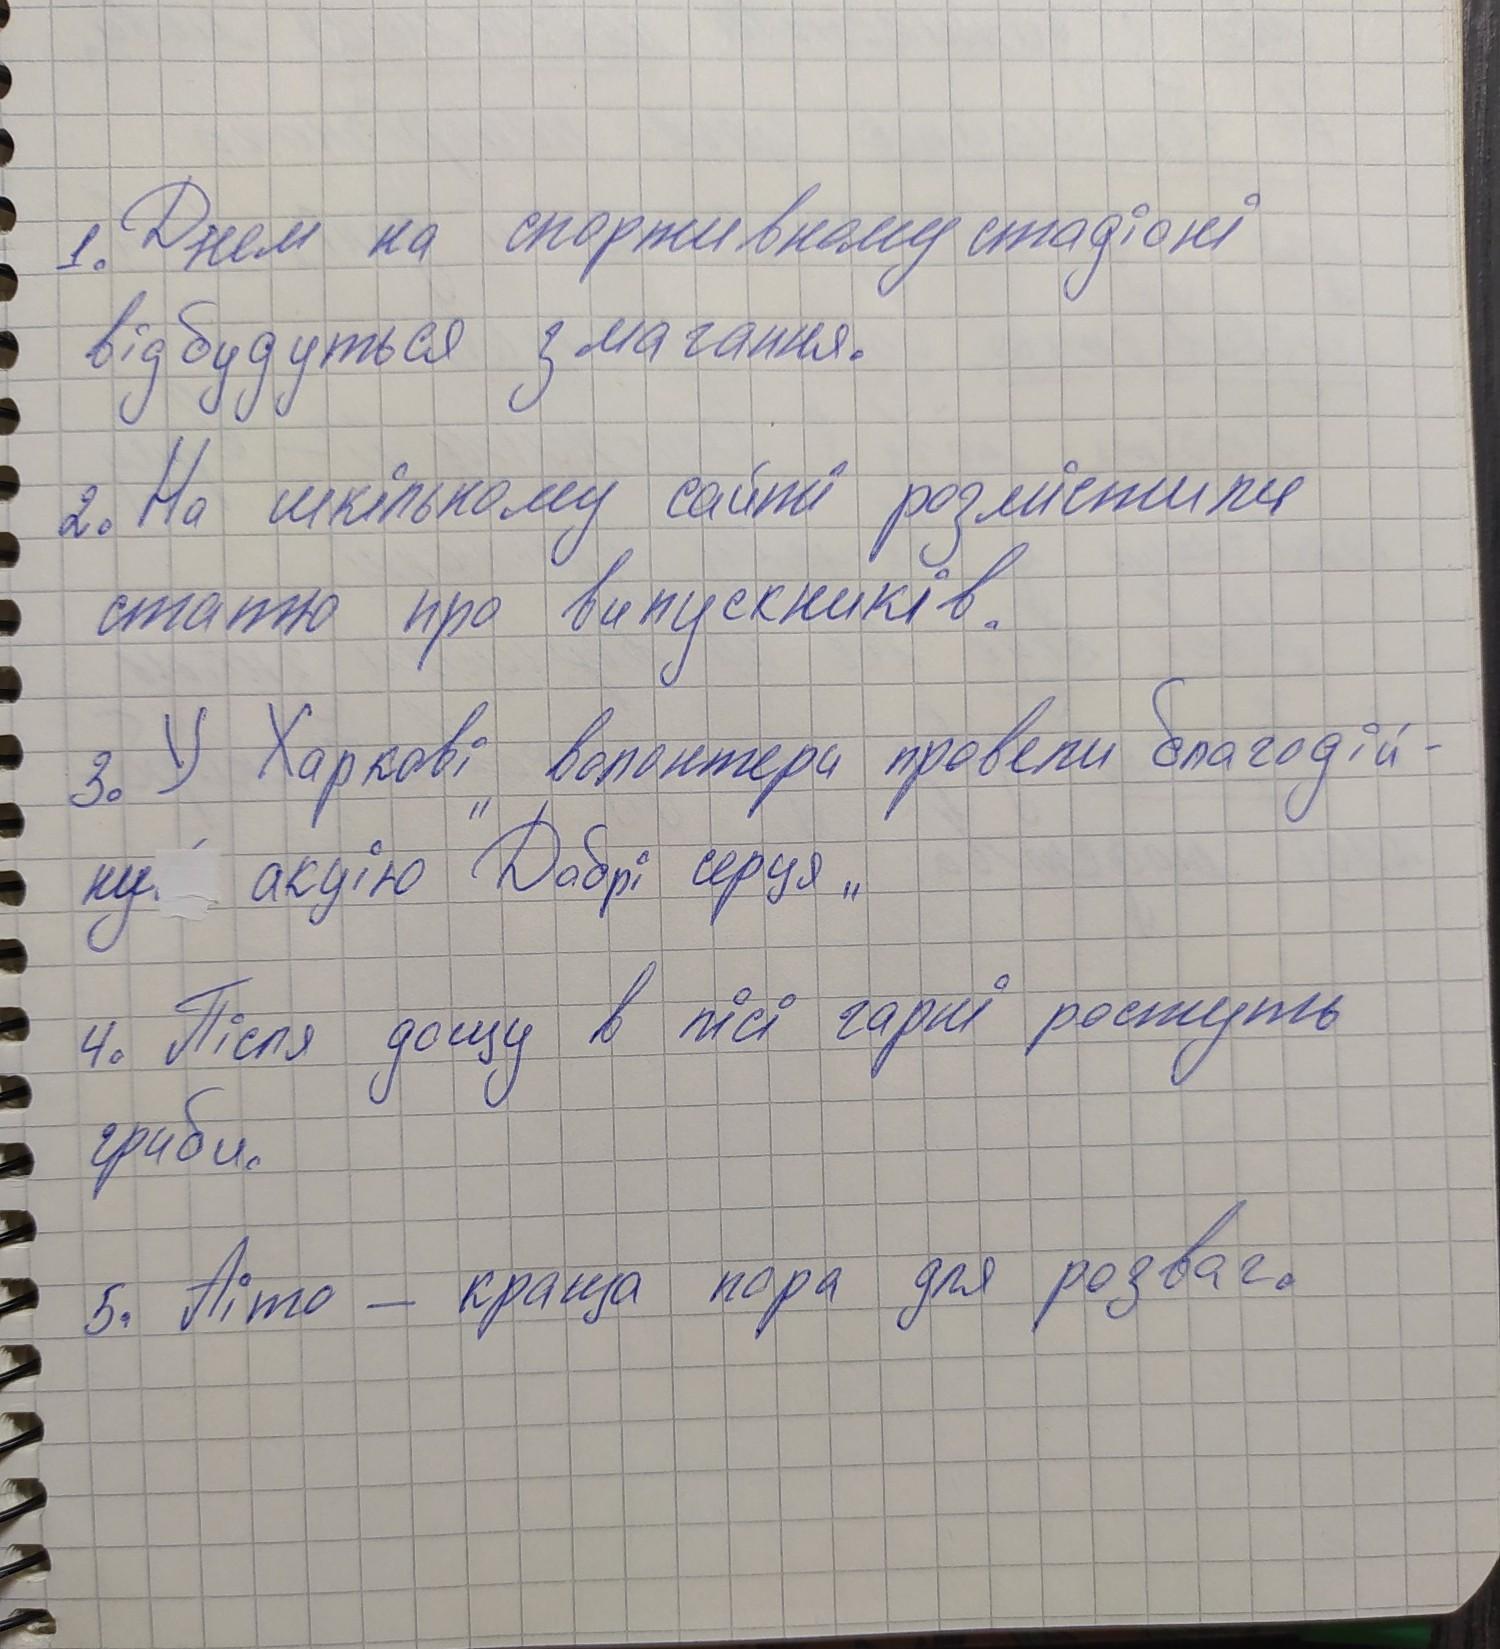 1. Днем на спортивному стадіоні
відбудуться змагання.
2. На шкільному сайті розмістили
статтю про випускників.
3. У Харкові волонтери провели благодій-
ну акцію "Добрі серця„
4. Після дощу в лісі гарні ростуть
гриби.
5. Літо – краща пора для розваг.